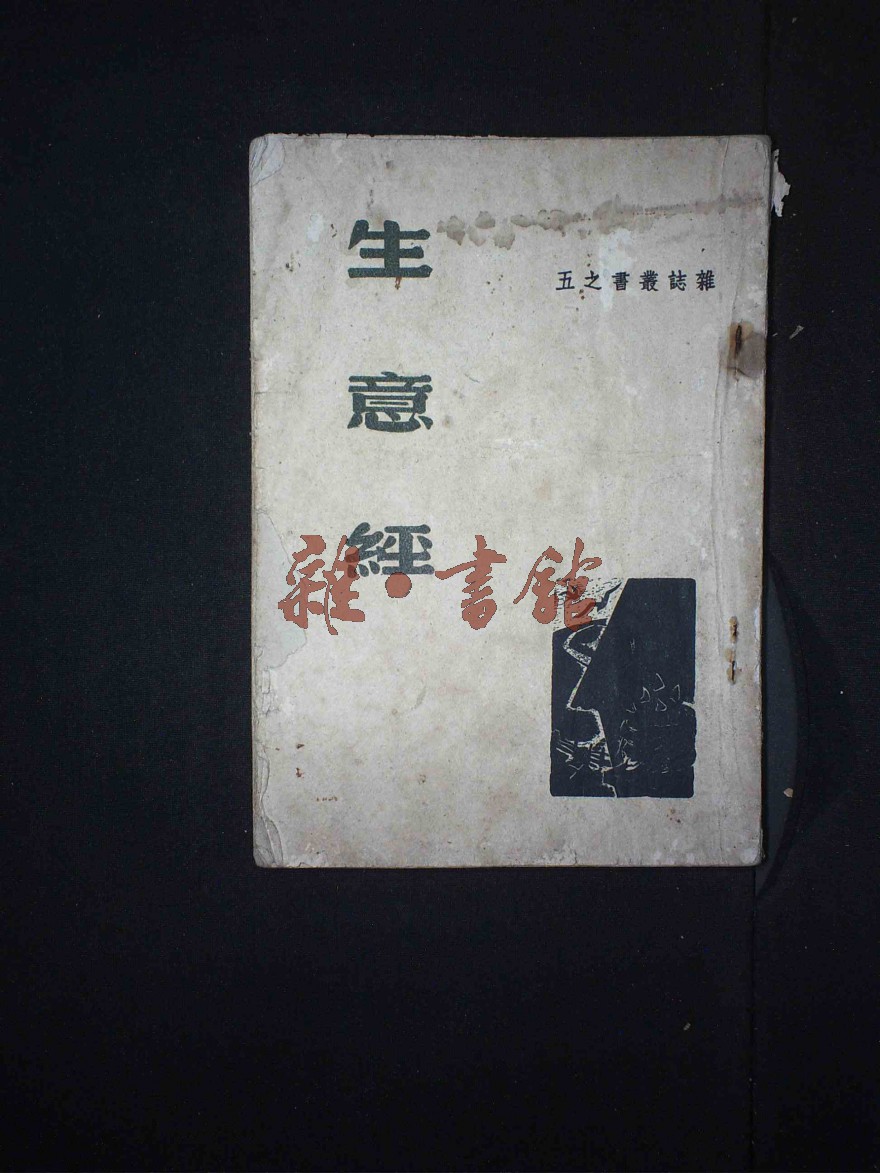 雜誌叢書之五
生意經
雜·書館